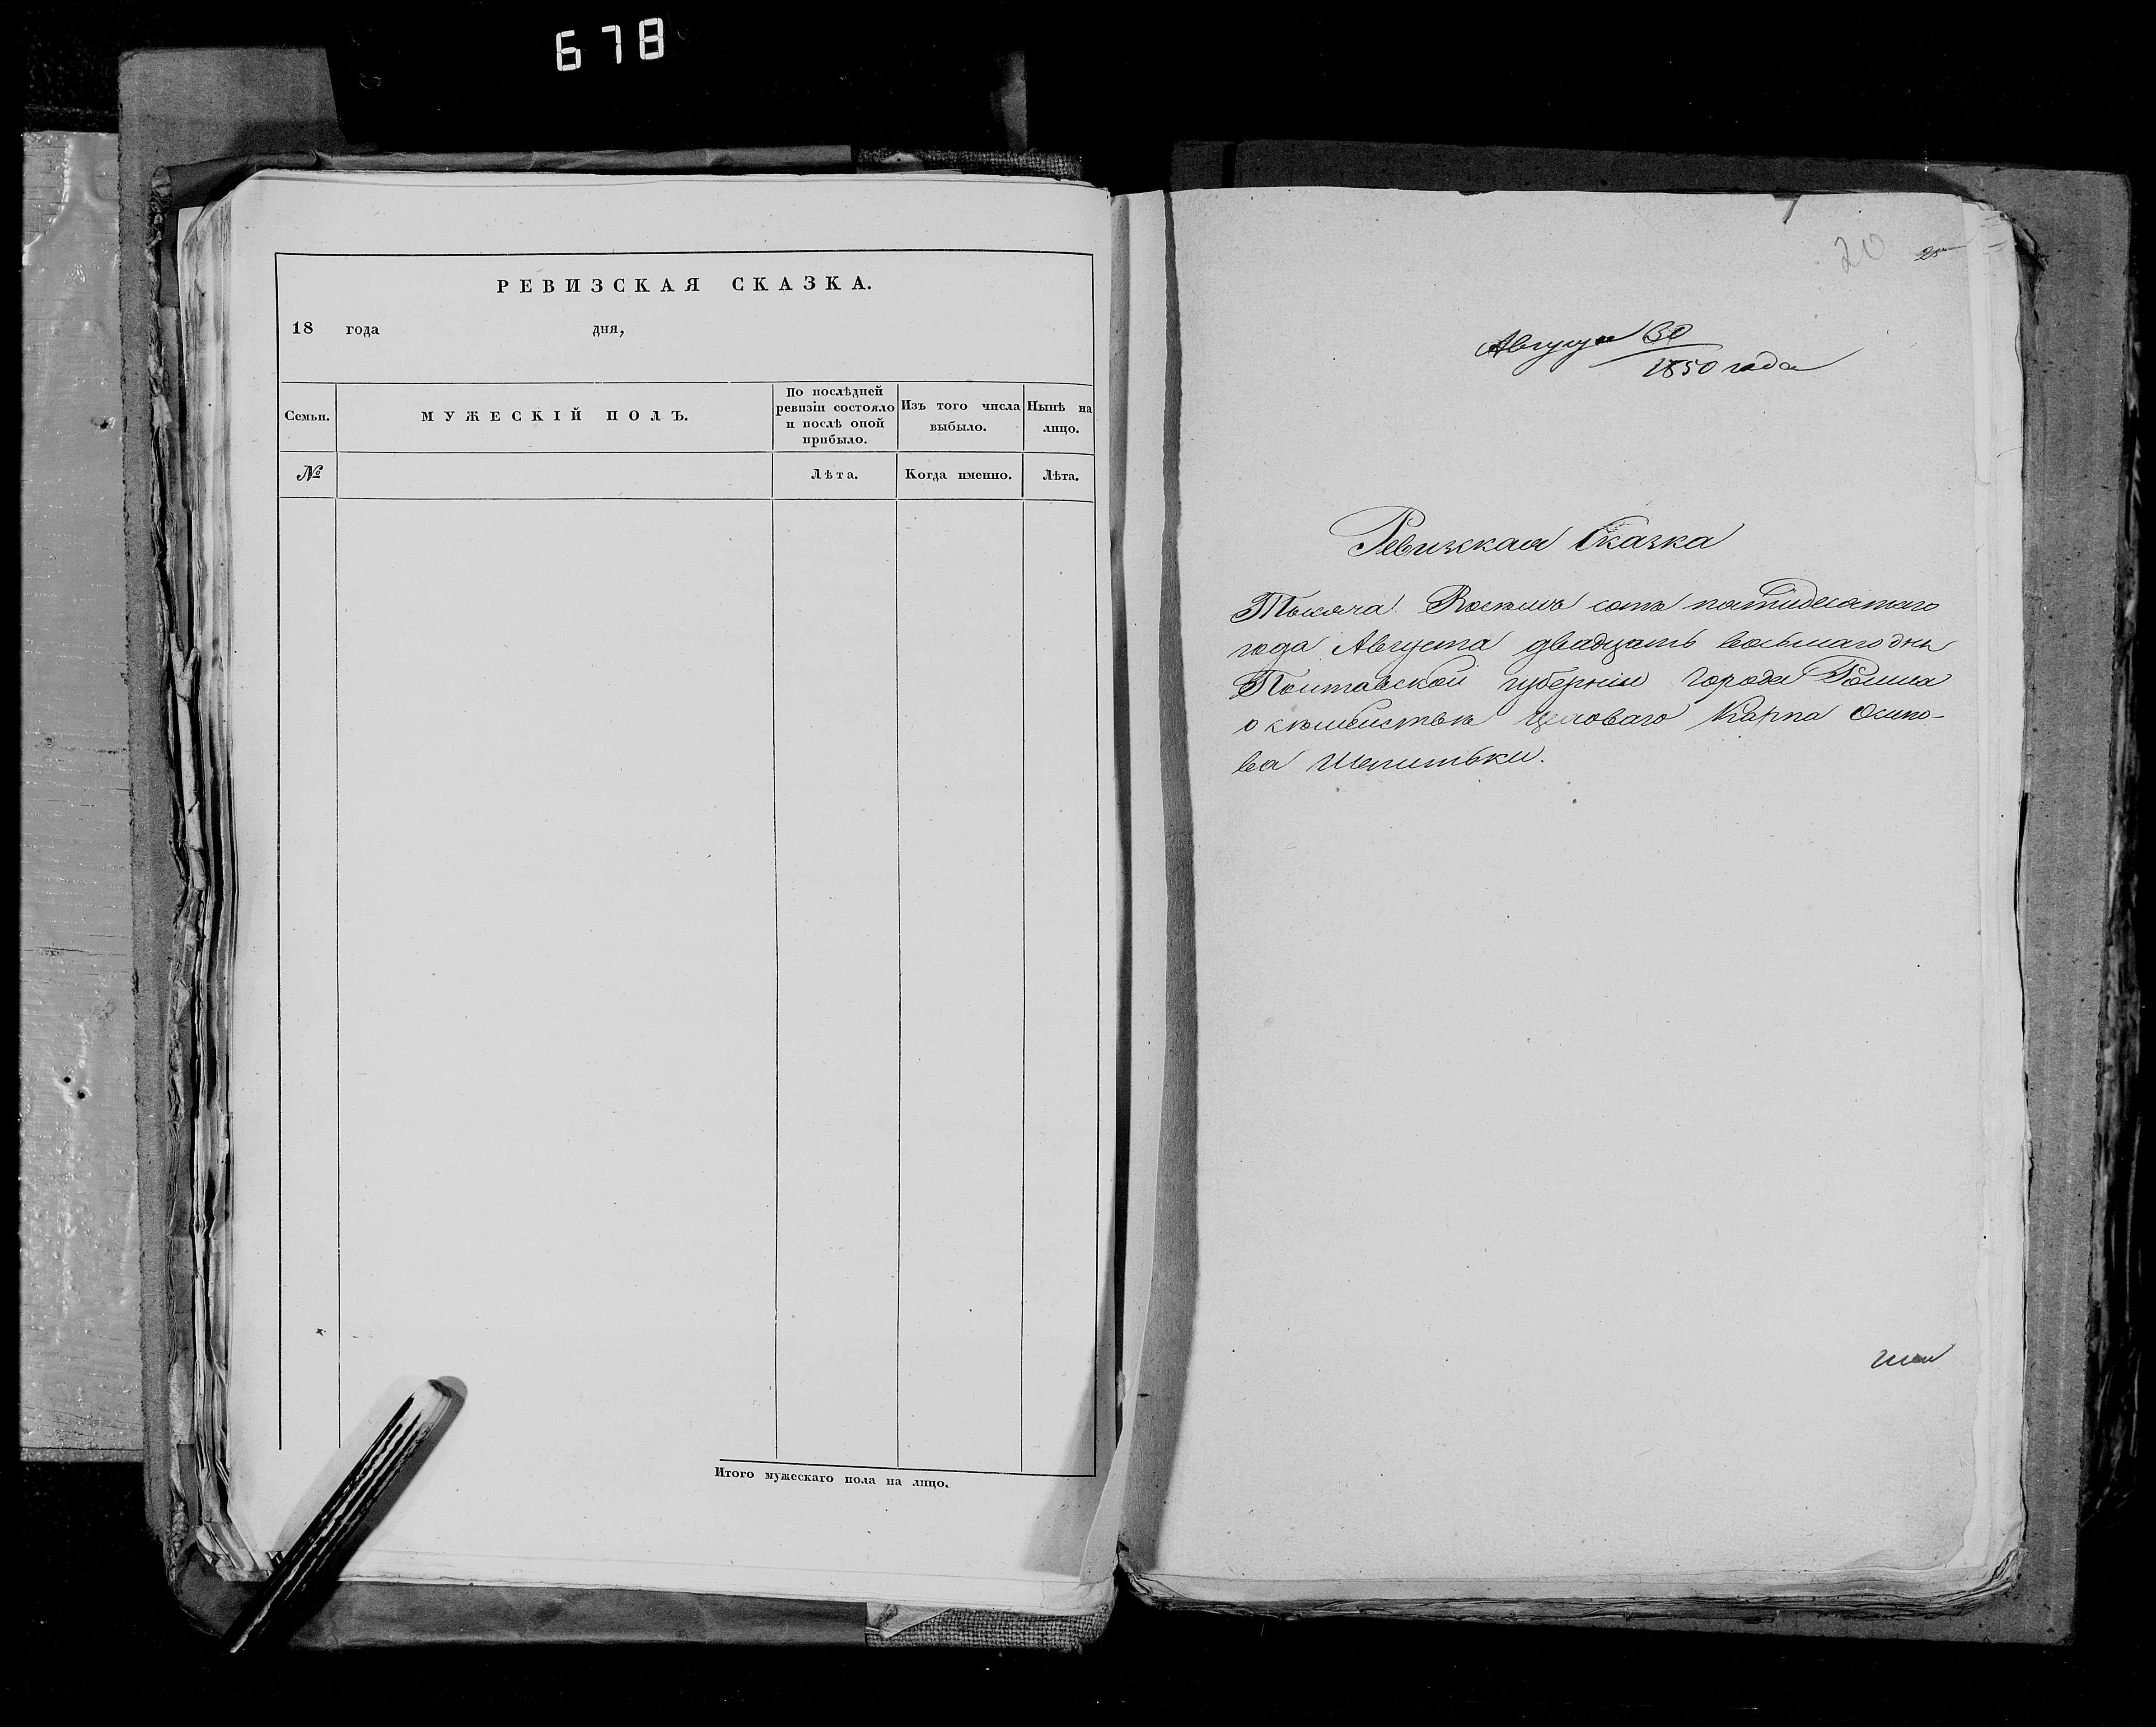 678
РЕВИЗСКАЯ СКАЗКА.
18 года дня,
Семьи.
МУЖЕСКІЙ ПОЛЪ.
По послѣдней
ревизіи состояло
и послѣ оной
прибыло.
Изъ того числа
выбыло.
Нынѣ на
лицо.
№
Лѣта.
Когда именно.
Лѣта.
Итого мужескаго пола на лицо.
20
Августа 30
1850 года
Ревизская Сказка
Тысяча Восемь сотъ пятидесятаго
года Августа двадцать восьмаго дня
Полтавской губерніи города Ромна
о семействѣ цеховаго Карпа Осипо-
ва